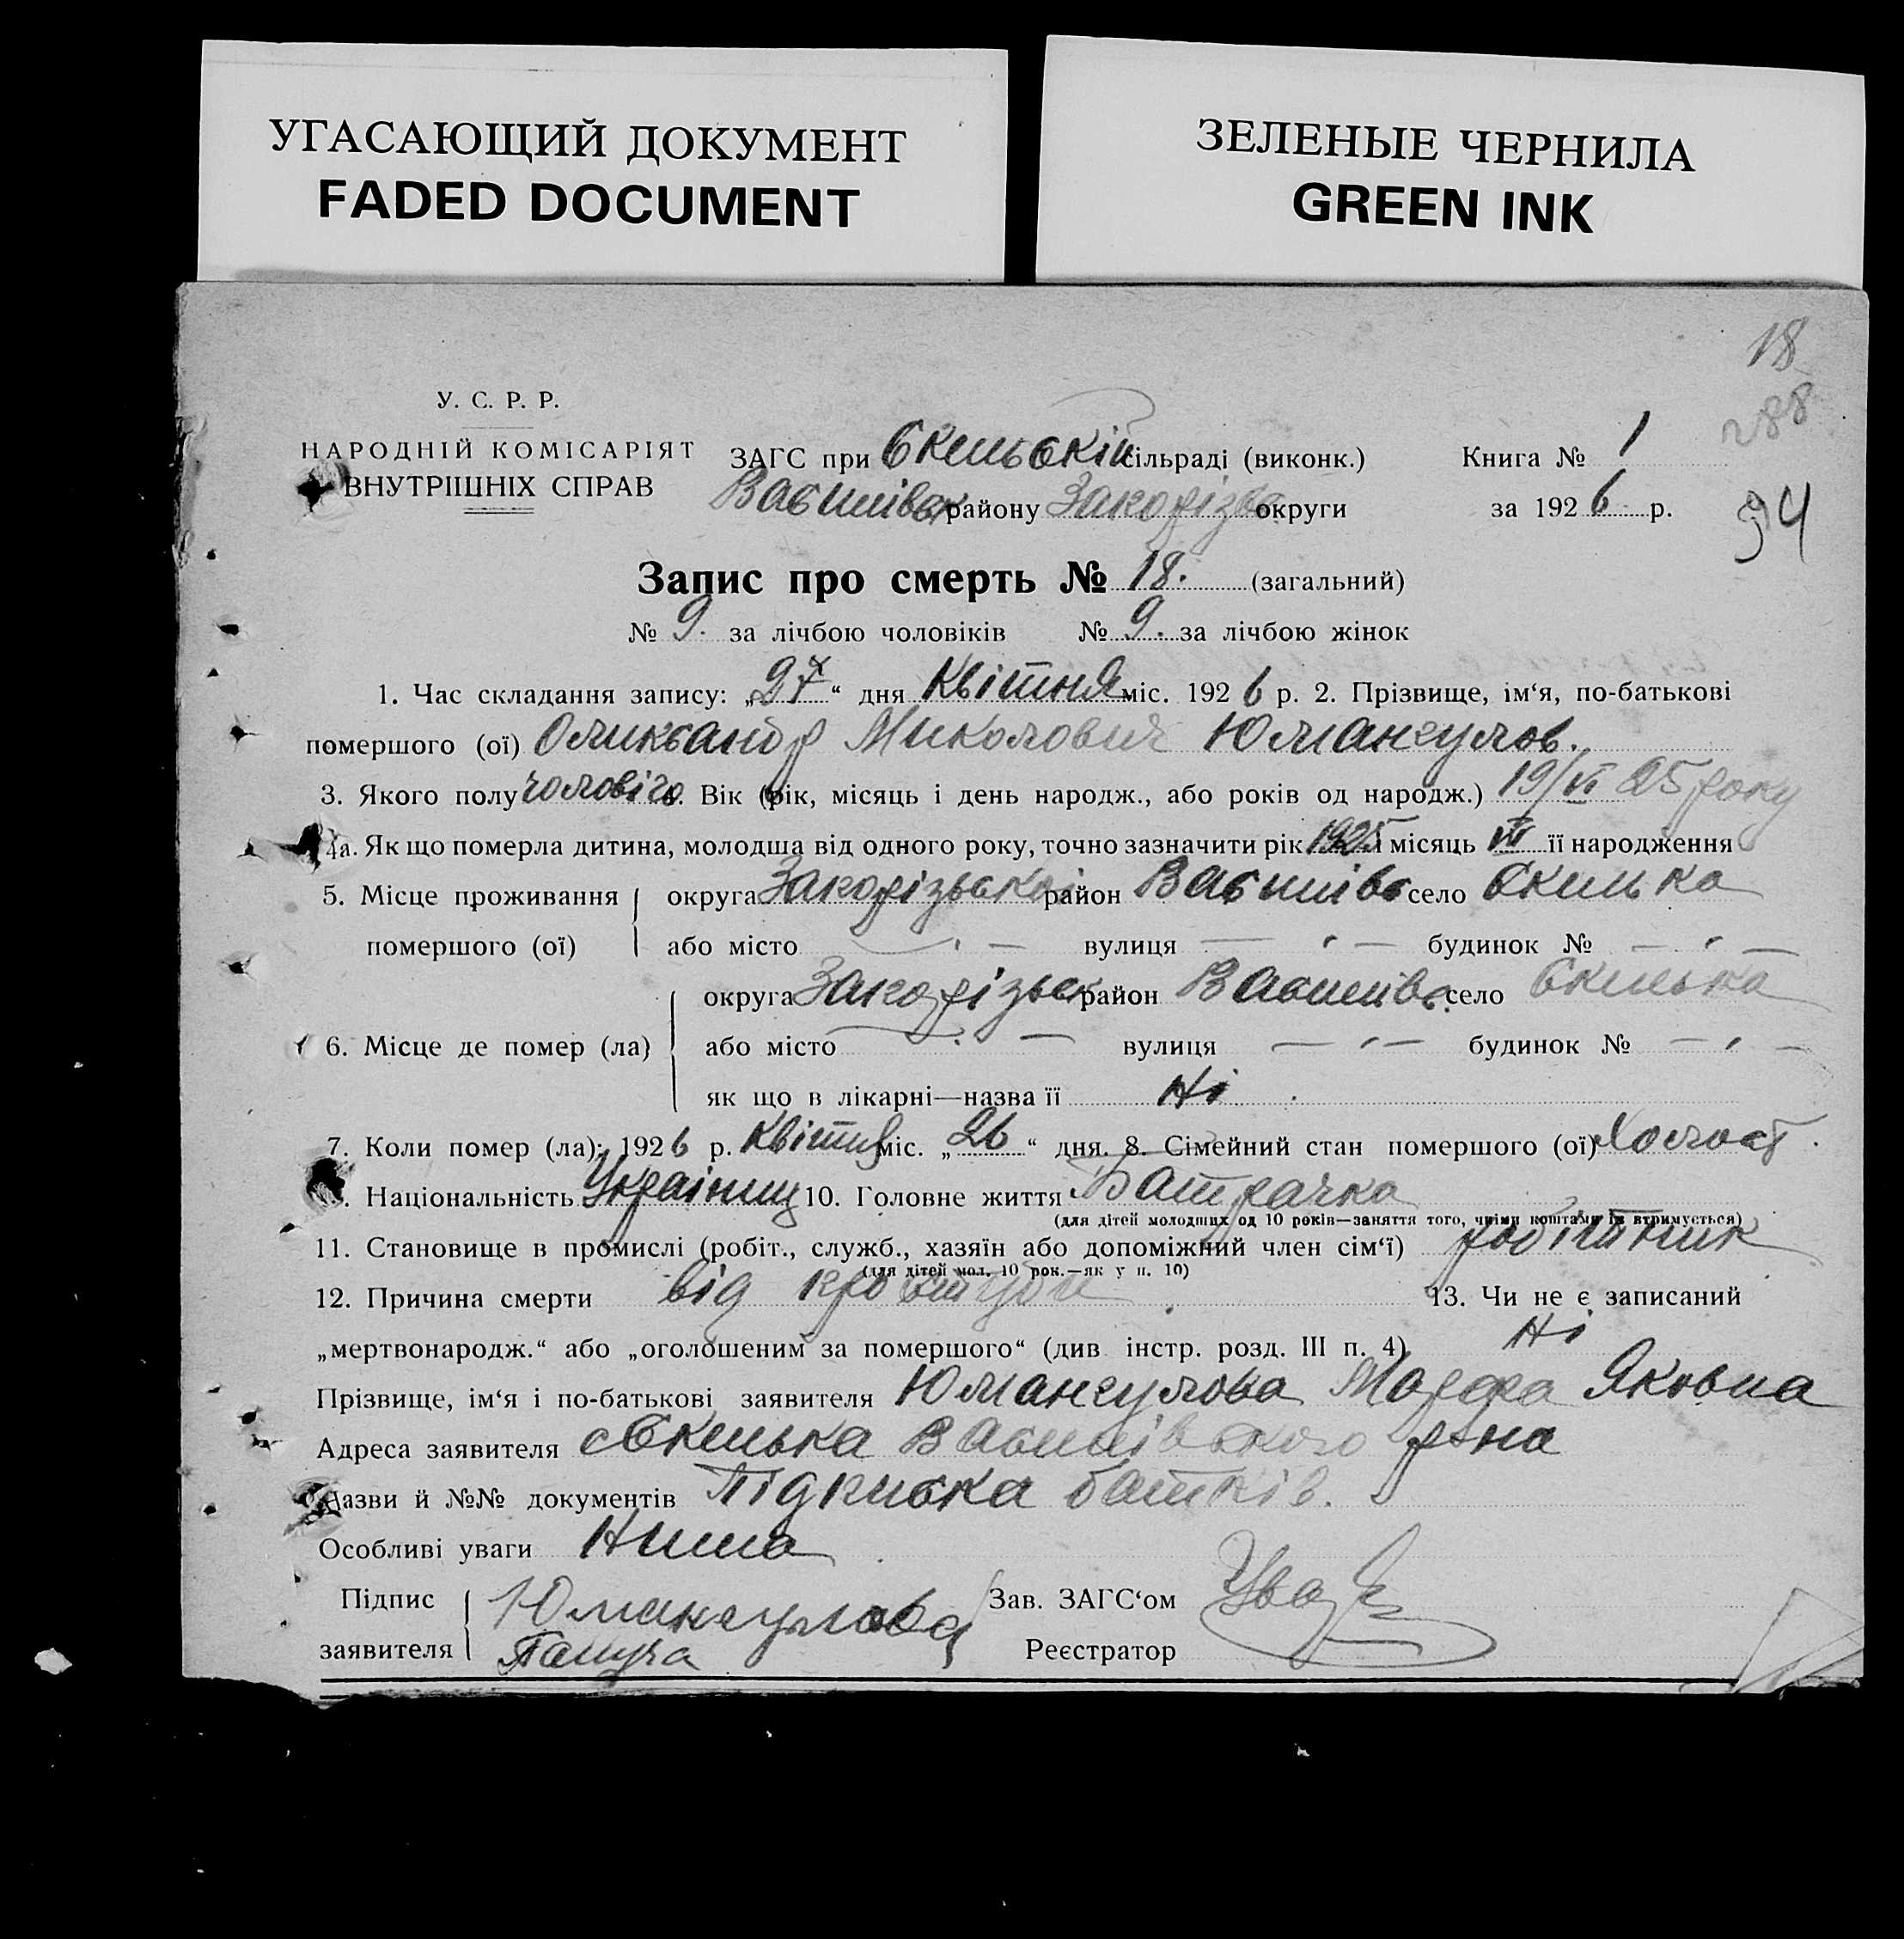 УГАСАЮЩИЙ ДОКУМЕНТ
FADED DOCUMENT
ЗЕЛЕНЫЕ ЧЕРНИЛА
GREEN INK
18
288
94
У. С. Р. Р.
НАРОДНІЙ КОМІСАРІЯТ
ВНУТРІШНІХ СПРАВ
ЗАГС при Скельскій сільраді (виконк.) Книга № 1
Василівськ району Запорізьк округи за 1926 р.
Запис про смерть № 18. (загальний)
№ 9. за лічбою чоловіків № 9. за лічбою жінок
1. Час складання запису: „27“ дня Квітня міс. 1926 р. 2. Прізвище, ім‘я, по-батькові
помершого (ої) Оликсандр Миколович Юмангулов.
3. Якого полу чоловічо. Вік (рік, місяць і день народж., або років од народж.) 19/VI 25 року
4а. Як що померла дитина, молодша від одного року, точно зазначити рік 1925 місяць її народження
5. Місце проживання округа район Василівс село Скилька
помершого (ої) або місто — вулиця — будинок № —
округа район Василівс. село Скилька
6. Місце де помер (ла) або місто — вулиця — будинок № —
як що в лікарні—назва її Ні
7. Коли помер (ла): 1926 р. Квітня міс. „26“ дня. 8. Сімейний стан помершого (ої) Холост.
Національність Украіниц 10. Головне життя Батрачка
(для дітей молодших од 10 років—заняття того, чиїми коштами їх втримується)
11. Становище в промислі (робіт., служб., хазяїн або допоміжний член сім‘ї) робітник
(для дітей мол. 10 рок.—як у п. 10)
12. Причина смерти від простуди. 13. Чи не є записаний
„мертвонародж.“ або „оголошеним за помершого“ (див. інстр. розд. III п. 4) Ні
Прізвище, ім‘я і по-батькові заявителя Юмангулова Марфа Яковна
Адреса заявителя с Скилька Василівского р-на
Назви й №№ документів Підписка батків.
Особливі уваги Нима
Підпис Юмангулова Зав. ЗАГС‘ом
заявителя Реєстратор